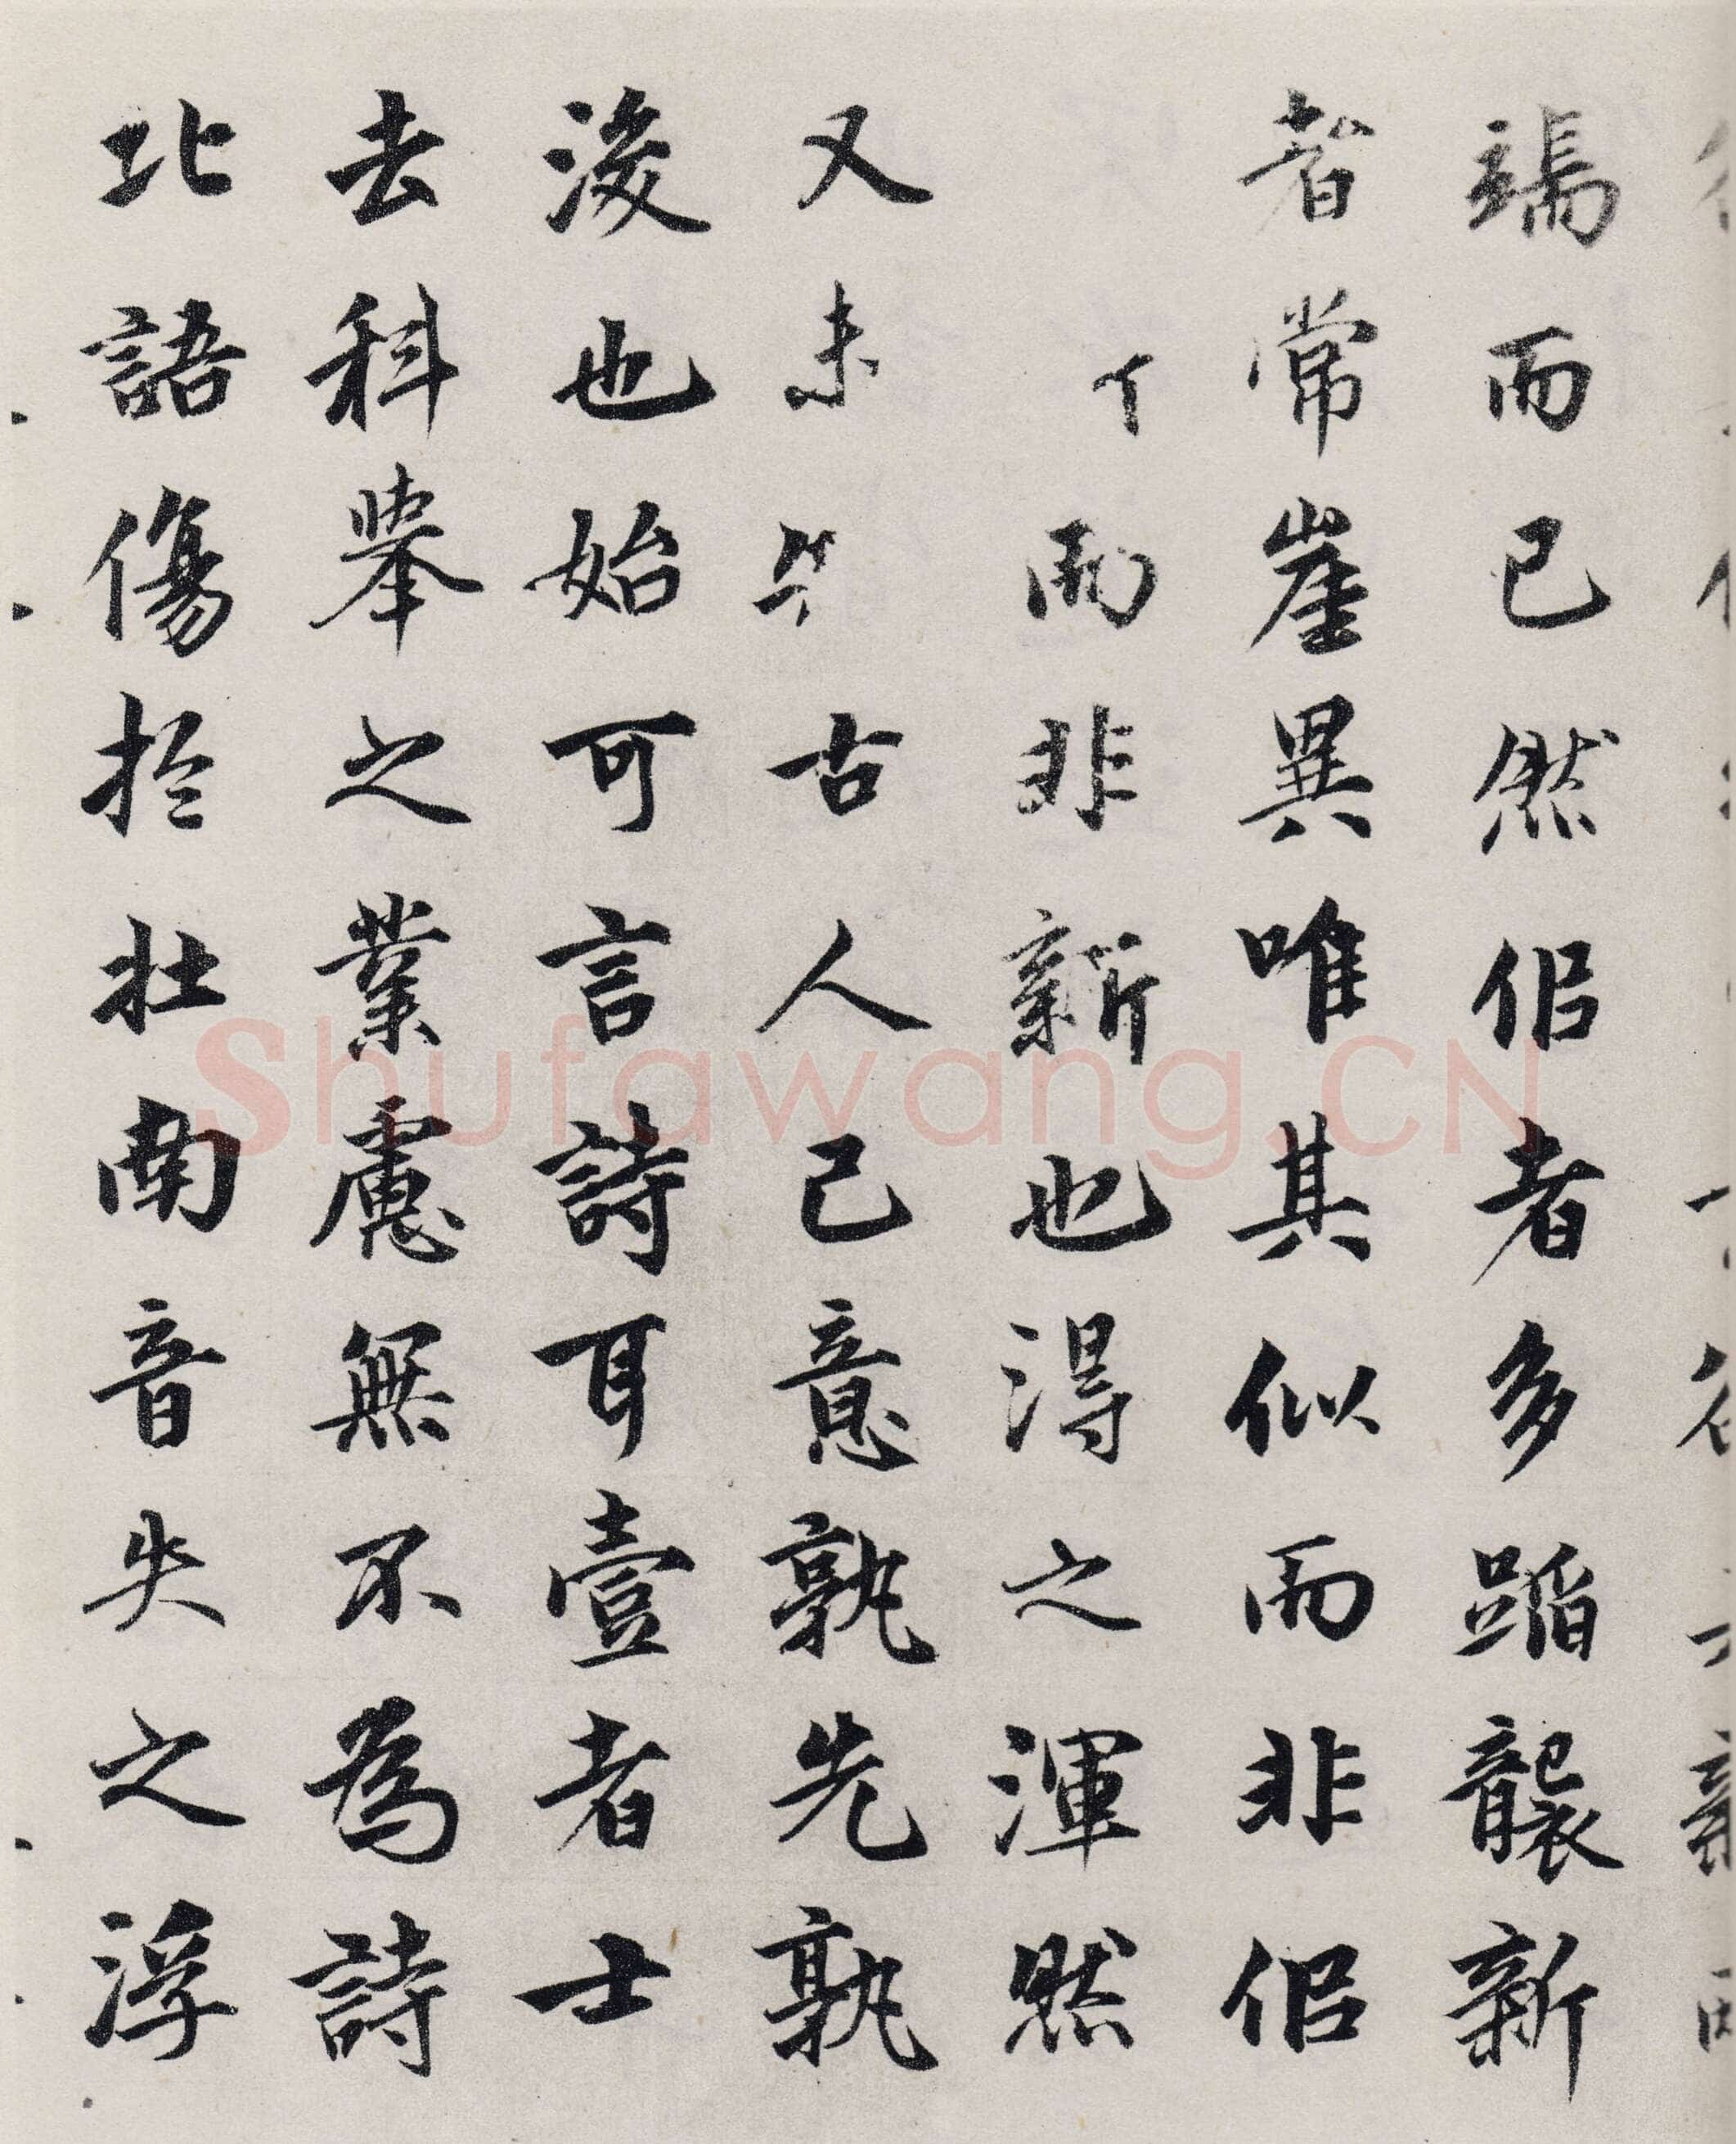 端而已然侣者多蹈襲新
者常崖異唯其似而非侣
而非新也淂之渾然
又未古人己意孰先孰
後也始可言詩耳壹者士
去科舉之業慮無不為詩
北語傷扵壮南音失之浮
Shufawang.CN